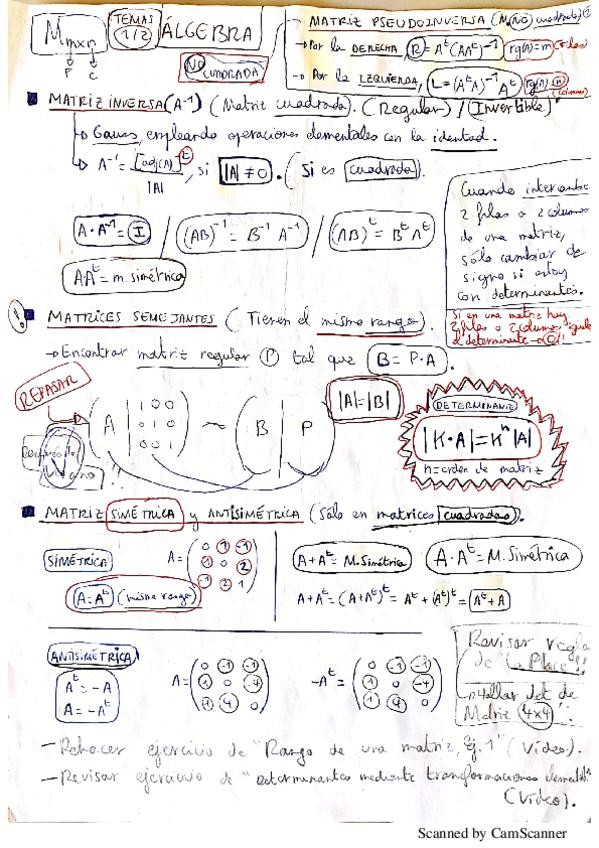 M mxn
F C
TEMAS 1/2
ÁLGEBRA
NO CUADRADA
- MATRIZ PSEUDOINVERSA (M. NO cuadrada)
→ Por la DERECHA, R = Aᵗ(AAᵗ)⁻¹ rg(A)=m (filas)
→ Por la IZQUIERDA, L = (AᵗA)⁻¹Aᵗ rg(A) n
MATRIZ INVERSA (A⁻¹) (Matriz cuadrada). (Regular) / (Invertible)
↳ Gauss, empleando operaciones elementales con la identidad.
↳ A⁻¹ = [adj(A)]ᵗ / |A|, si |A| ≠ 0. (Si es cuadrada).
A·A⁻¹ = I / (AB)⁻¹ = B⁻¹A⁻¹ / (AB)ᵗ = BᵗAᵗ
AAᵗ = m. simétrica
Cuando intercambie
2 filas o 2 columnas
de una matriz,
sólo cambiar de
signo si estoy
con determinantes.
Si en una matriz hay
2 filas o 2 columnas iguales
el determinante → 0!!
! MATRICES SEMEJANTES (Tienen el mismo rango).
→ Encontrar matriz regular P tal que B = P·A
REPASAR
(A | 1 0 0
0 1 0
0 0 1) ~ (B | P)
|A|=|B|
DETERMINANTE
|K·A| = Kⁿ|A|
n=orden de matriz
MATRIZ SIMÉTRICA y ANTISIMÉTRICA (Sólo en matrices cuadradas).
SIMÉTRICA
A = (0 1 -1
1 0 2
-1 2 1)
A=Aᵗ (mismo rango)
A+Aᵗ = M. Simétrica
A·Aᵗ = M. Simétrica
A+Aᵗ = (A+Aᵗ)ᵗ = Aᵗ+(Aᵗ)ᵗ = Aᵗ+A
ANTISIMÉTRICA
Aᵗ = -A
A = -Aᵗ
A = (0 -1 -1
1 0 -4
1 4 0)
-Aᵗ = (0 -1 -1
1 0 -4
1 4 0)
Revisar regla
de La Place!!
→ Hallar det de
Matriz 4x4
- Rehacer ejercicio de "Rango de una matriz, Ej. 1" (Vídeo).
- Revisar ejercicio de "Determinantes mediante transformaciones elementales"
(Vídeo).
Scanned by CamScanner